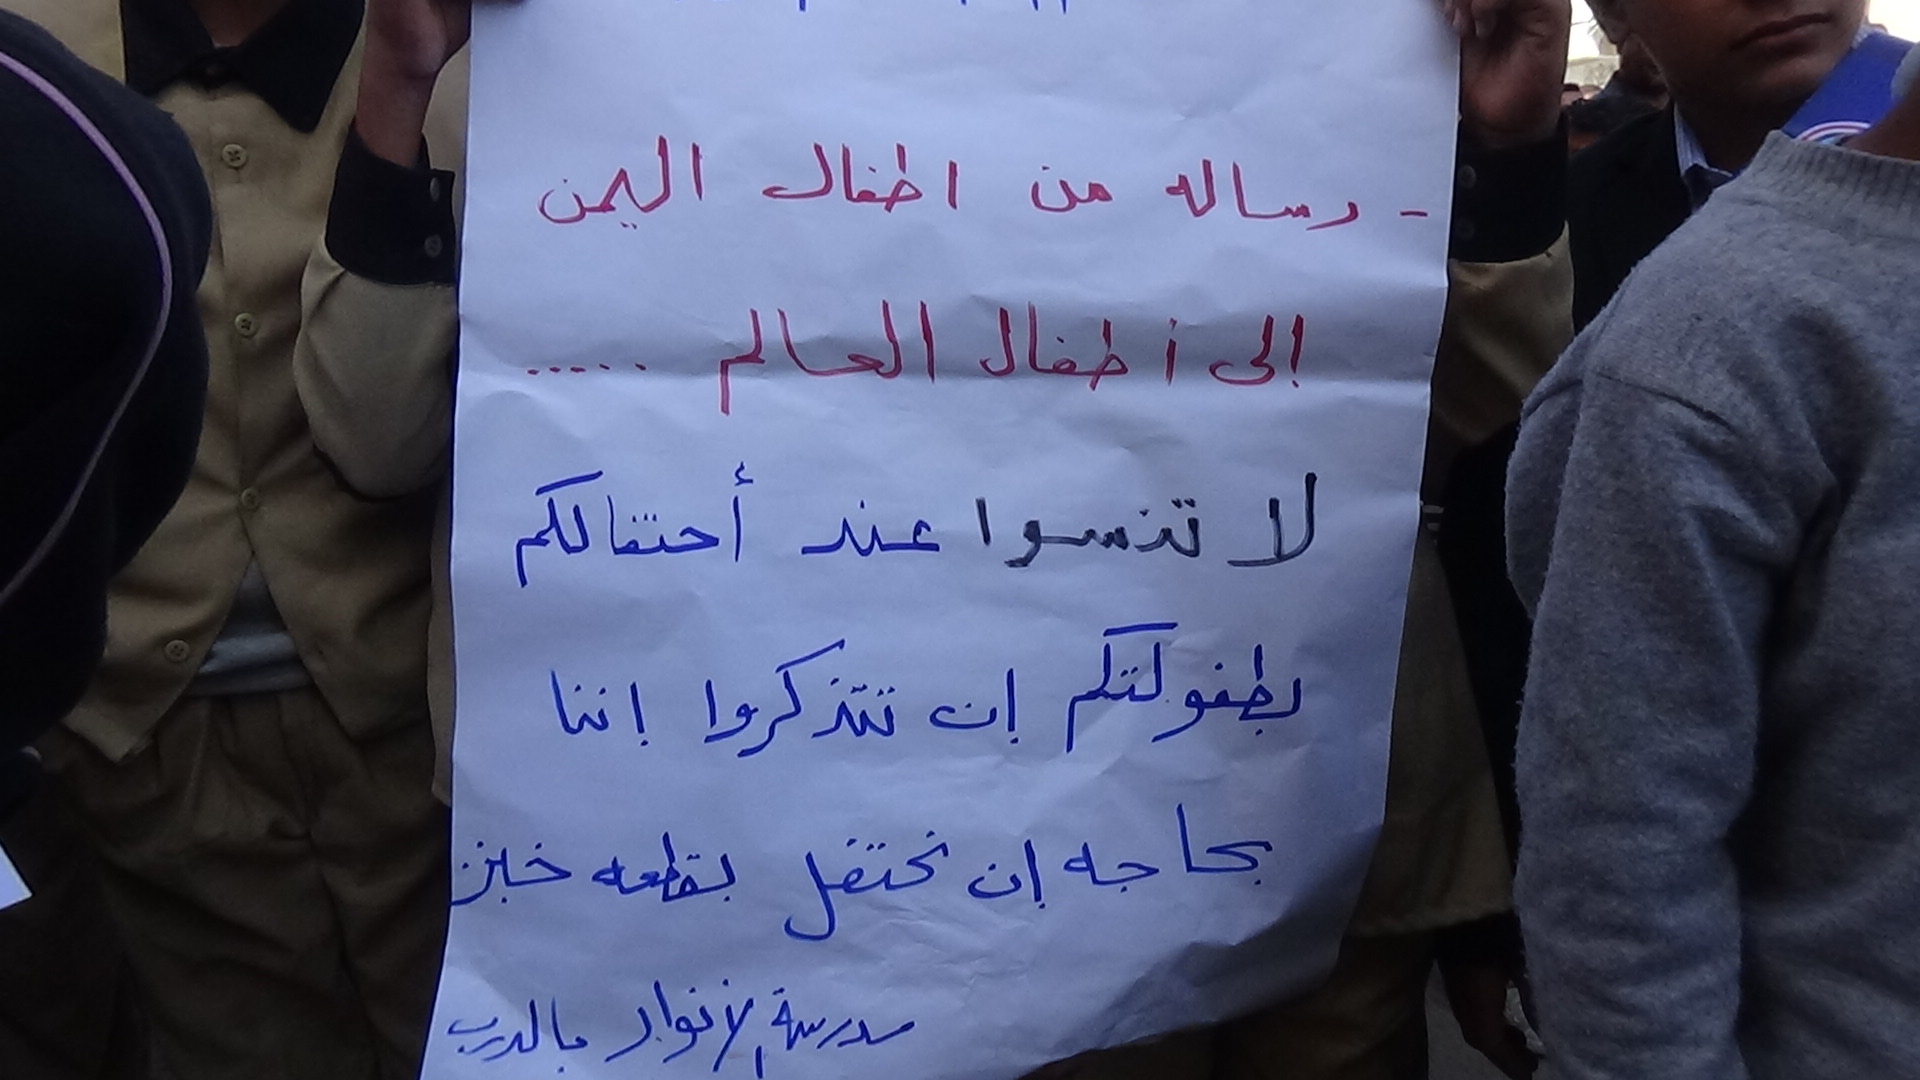 - رساله من اطفال اليمن
إلى أطفال العالم .....
لا تنسوا عند أحتفالكم
بطفولتكم إن تتذكروا إننا
بحاجه إن نحتفل بقطعه خبز
مدرسة الانوار بالدرب